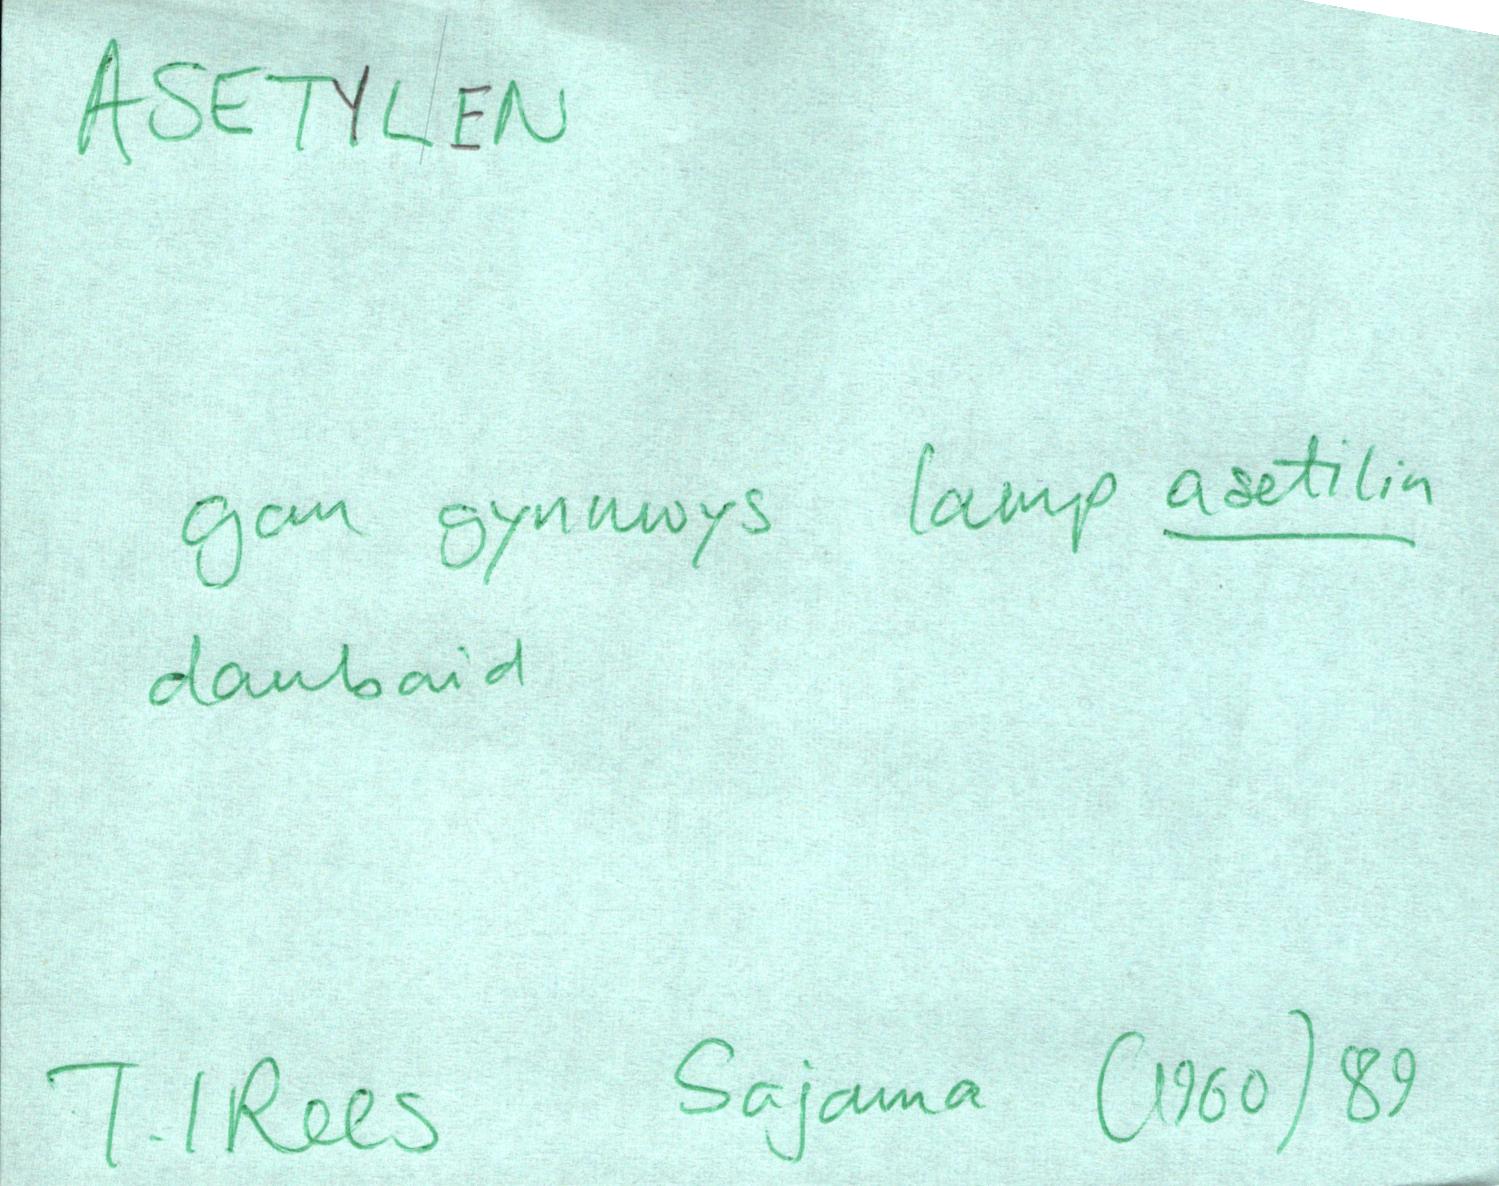 ASETYLEN
gan gynnwys lamp asetilin
danbaid
T. I Rees Sajama (1960) 89